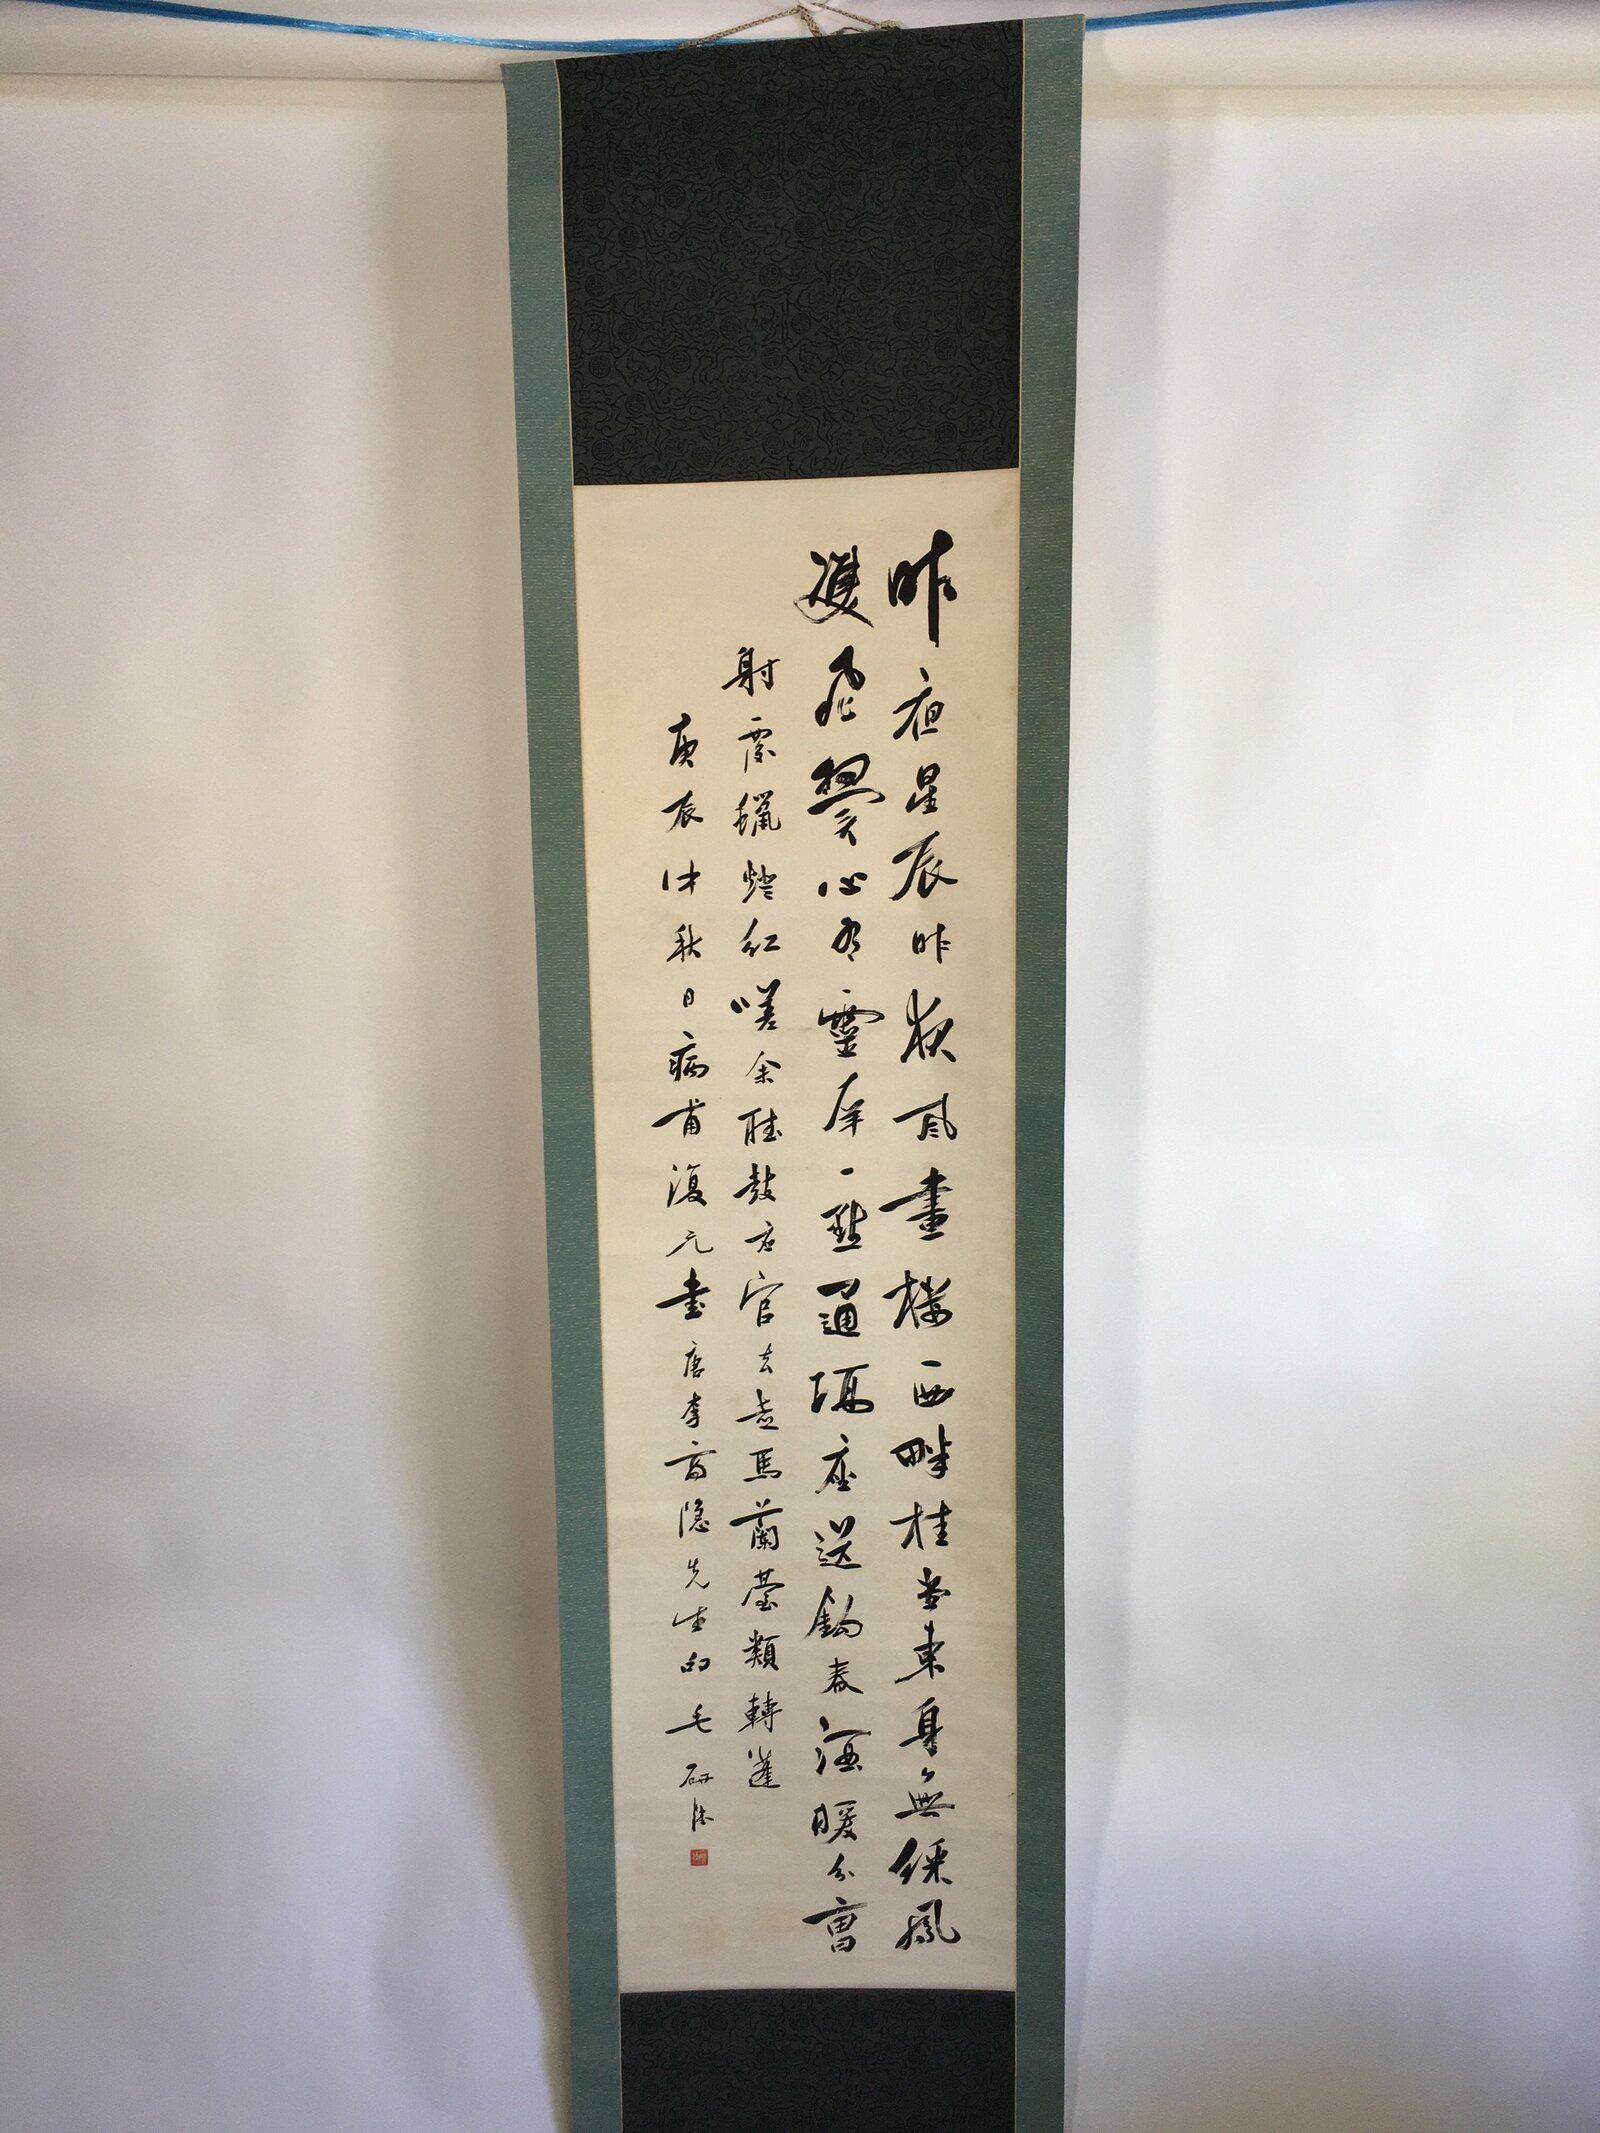 昨夜星辰昨夜風畫樓西畔桂堂東身無綵鳳
雙飛翼心有靈犀一點通隔座送鉤春酒暖分曹
射覆蠟燈紅嗟余聽鼓應官去走馬蘭臺類轉蓬
庚辰仲秋日病甫復元書唐李商隱先生句毛研